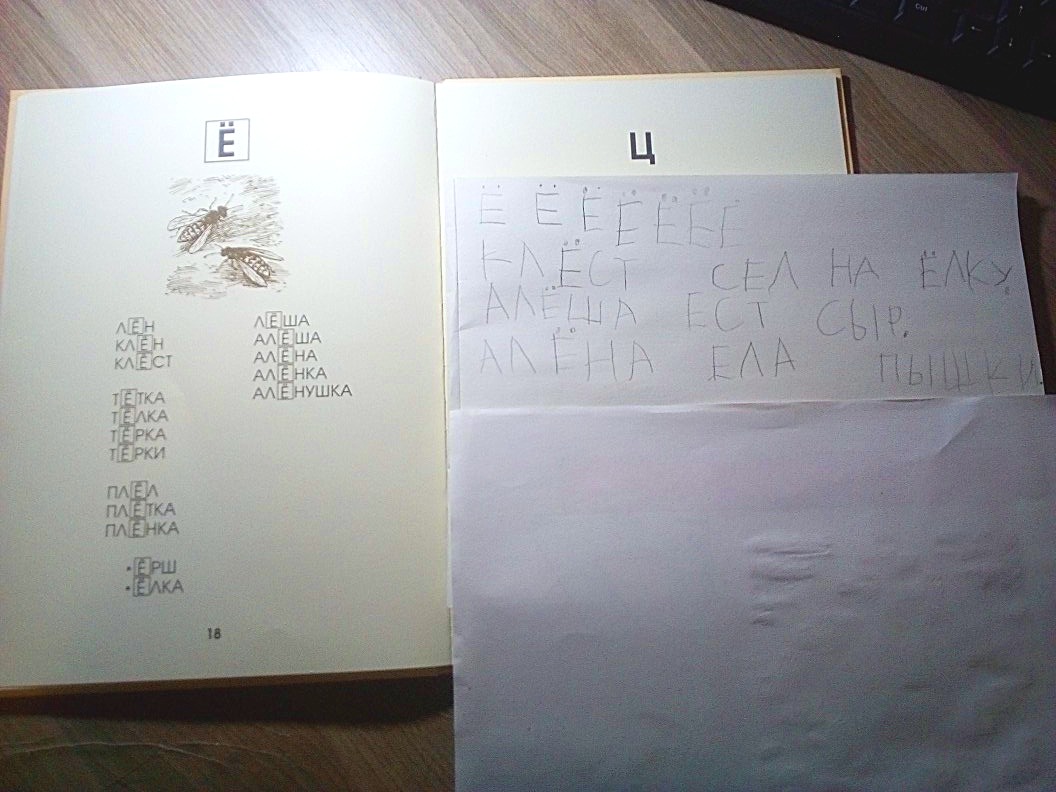 Ё
ЛЁН
КЛЁН
КЛЁСТ
ТЁТКА
ТЁЛКА
ТЁРКА
ТЁРКИ
ПЛЁЛ
ПЛЁТКА
ПЛЁНКА
• ЁРШ
• ЁЛКА
ЛЁША
АЛЁША
АЛЁНА
АЛЁНКА
АЛЁНУШКА
18
Ц
Ё Ё Ё Ё Ё Ё Е
КЛЁСТ СЕЛ НА ЁЛКУ.
АЛЁША ЕСТ СЫР.
АЛЁНА ЕЛА ПЫШКИ.
Ctrl